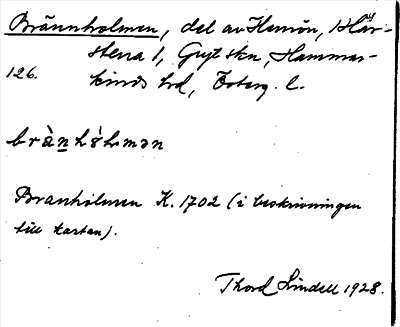 Brännholmen, del av Hemön, 1 Här-
stena 1, Gryt skn, Hammar-
126. kinds hd, Österg. l.
bràn hól mən
Branholmen K. 1702 (i beskrivningen
till kartan).
Thord Lindell 1928.